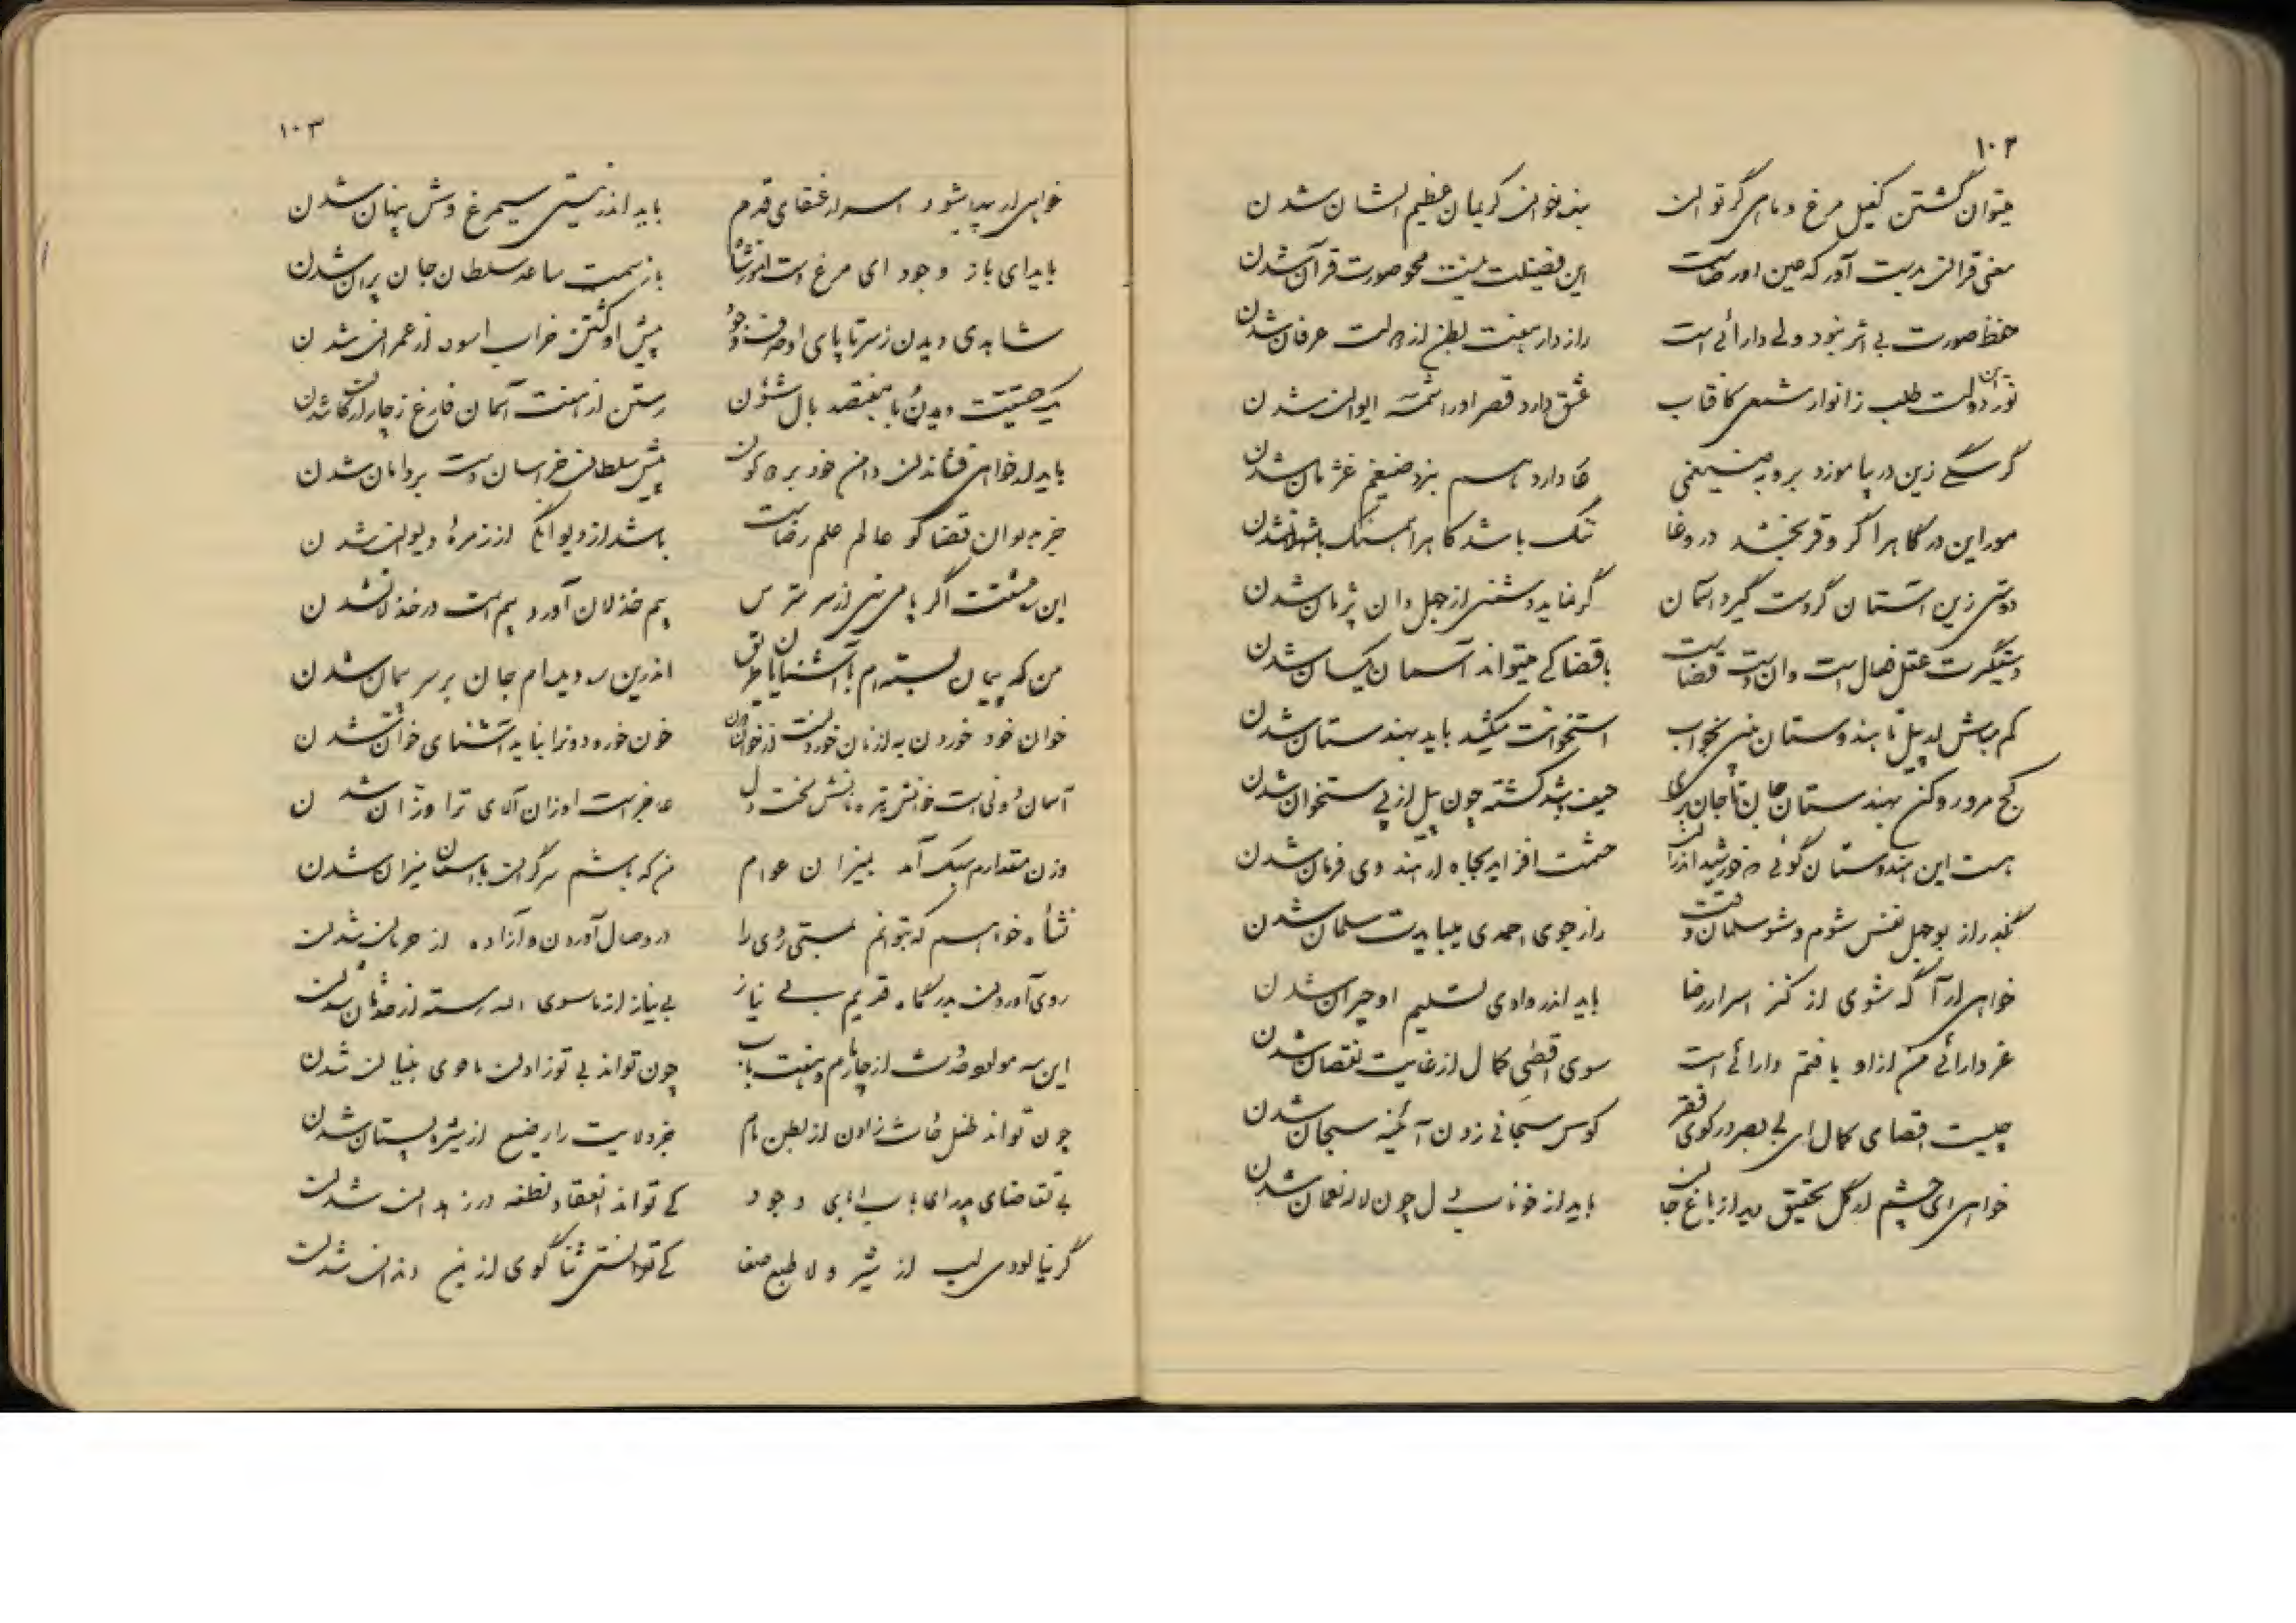 ۱۰۲
میتوان گشتن کفیل مرغ و ماهی گر توان بنده خوان کریمان عظیم الشان شدن
معنی قرآن بدست آور که عین اولیاست این فضیلت نیست محو صورت قرآن شدن
حفظ صورت بی اثر نبود ولی دارائی است رازدار هفت بطن از دولت عرفان شدن
نور این دولت طلب ز انوار شمسی کافتاب عشق دارد قصر او را شمسه ایوان شدن
گر سگی زین در بیاموزد بروبه ضیغمی عار دارد همسر بزد ضیغم غژمان شدن
مور این درگاه را گر وقر بخشد در وغا ننگ باشد کاه را همسنگ با ثهلان شدن
دوستی زین آستان گر دست گیرد آسمان گر نماید دشمنی از جهل دان پژمان شدن
دستگیرت عقل فعال است و آن دست قضاست با قضا کی میتواند آسمان یکسان شدن
کم مباش از پیل تا هندوستان بینی بخواب استخوانت میکشد باید بهندستان شدن
کج مرو رو کن بهندستان جان تا جان بری حیف باشد کشته چون پیل از پی ستخوان شدن
هست این هندوستان گوئی خورشید اندران حشمت افزاید بجاه از هندوی فرمان شدن
بگذر از بوجهل نفس شوم و شو سلمان وقت راز جوی احمدی میبایدت سلمان شدن
خواهی ار آگه شوی از کنز اسرار رضا باید اندر وادی تسلیم او حیران شدن
غر دارائی من از او یافتم دارائی است سوی اقصی کمال از غایت نقصان شدن
چیست اقصای کمال ای بی بصر در کوی فقر کوس سبحانی زدن آئینه سبحان شدن
خواهی ای چشم ار گل تحقیق دید از باغ جان باید از خوناب دل چون لاله نعمان شدن
۱۰۳
خواهی ار پیدا شود اسرار عنقای قدم باید اندر نیستی سیمرغ وش پنهان شدن
باید ای باز وجود ای مرغ دست آموز شاه باز سمت ساعد سلطان جان پران شدن
شاهدی دیدن ز سر تا پای او پیش او گشتن خراب آسوده از عمران شدن
یک حقیقت دیدن با هفتصد بال شئون رستن از هفت آسمان فارغ ز چار ارکان شدن
باید ار خواهی فشاندن دامن خود بر دو کون پیش سلطان خراسان دست بر دامان شدن
جز به دیوان قضا کو عالم علم رضاست باشد از دیوانگی از زمره دیوان شدن
این ره عشقست اگر پا می نهی از سر مترس بیم خذلان آورد بیم است در خذلان شدن
من که پیمان بسته ام با آشنایان طریق اندرین ره دیده ام جان بر سر پیمان شدن
خوان خود خوردن به از نان خوردنت از خوان خون خور و دونرا نباید آشنای خوان شدن
آسمان دونی است خوانش تیره نانش لخت دل عاجز است اوزان آلای ترا وزان شدن
وزن مقدارم سبک آمد بمیزان عوام من که باشم سر گران با آسمان میزان شدن
نشأه خواهم که بتوانم بمستی روی را در وصال آوردن و آزاده از حرمان شدن
روی آوردن بدرگاه قدیم بی نیاز بی نیاز از ماسوی الله رسته از حدثان شدن
این سه مولود حدث از چار مام و هفت باب چون تواند بی تو زادن ماحی بنیان شدن
چون تواند طفل حادث زادن از بطن مام جز ولایت را رضیع از شیره پستان شدن
بی تقاضای پدر ای باب ابای وجود کی تواند انعقاد نطفه در زهدان شدن
گر نیالودی لب از شیر ولا طبع صفا کی توانستی ثنا گوی از بن دندان شدن